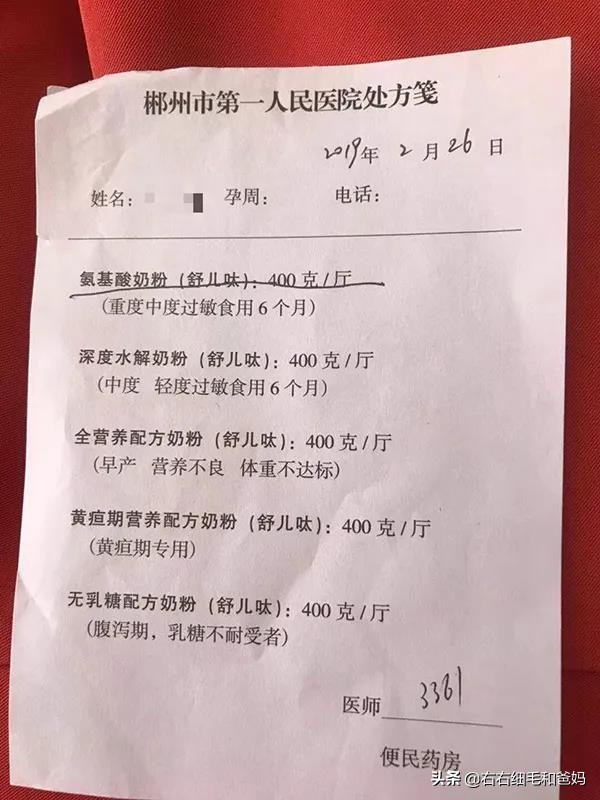 郴州市第一人民医院处方笺
2019年 2 月 26 日
姓名： 孕周： 电话：
氨基酸奶粉（舒儿呔）：400克/厅
（重度中度过敏食用6个月）
深度水解奶粉（舒儿呔）：400克/厅
（中度 轻度过敏食用6个月）
全营养配方奶粉（舒儿呔）：400克/厅
（早产 营养不良 体重不达标）
黄疸期营养配方奶粉（舒儿呔）：400克/厅
（黄疸期专用）
无乳糖配方奶粉（舒儿呔）：400克/厅
（腹泻期，乳糖不耐受者）
医师 3361
便民药房
头条 @右右细毛和爸妈